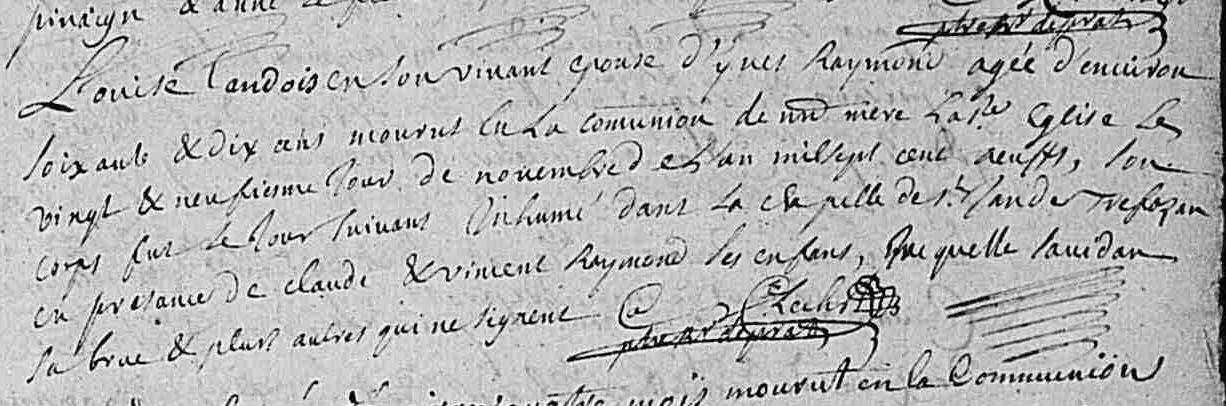 pinaign & anne
Louise Landois en son vivant epouse d'yves Raymond ageé d'environ
soixante & dix ans mourut en la comunion de nre mere la Ste Eglise le
vingt & neufiesme jour de novembre de l'an mil sept cent neuff, son
corps fut le jour suivant Inhumé dans la chapelle de St
en presance de claude & vincent Raymond ses enfans,
sa brue & plusrs autres qui ne signent
ptre
mourut en la Communion